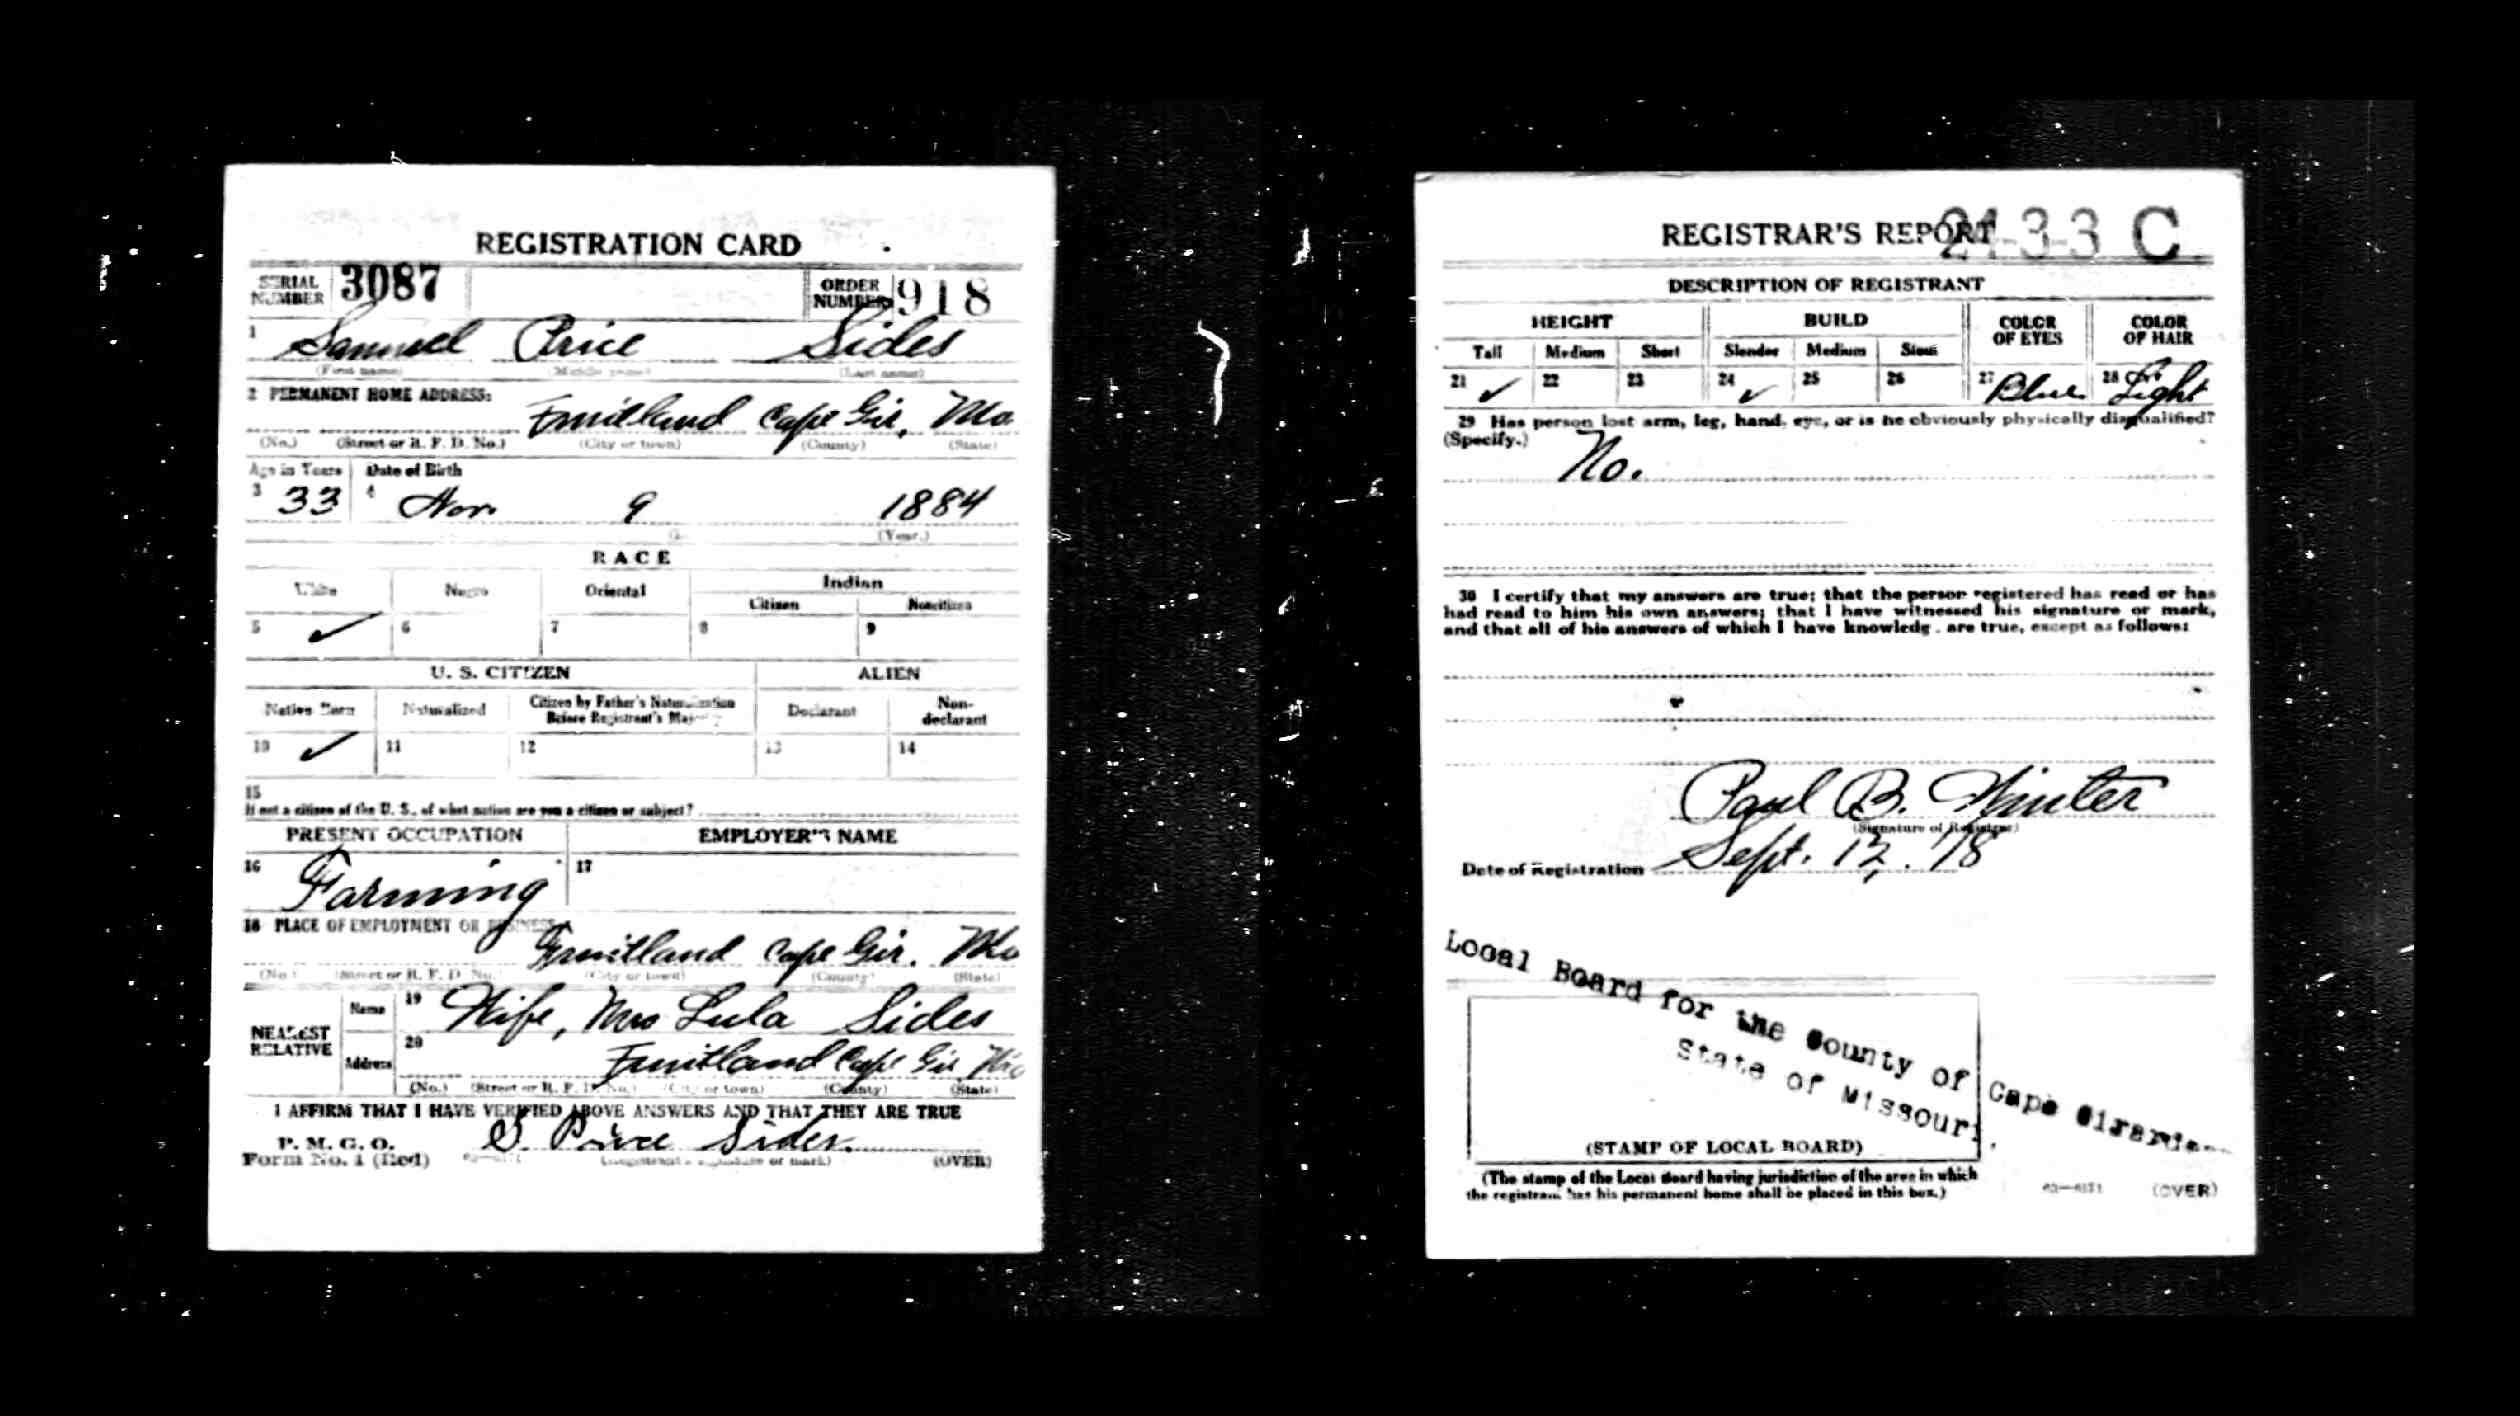 REGISTRATION CARD
SERIAL NUMBER 3087 ORDER NUMBER 918
1 Samuel Price Sides
(First name) (Middle name) (Last name)
2 PERMANENT HOME ADDRESS:
Fruitland Cape Gir. Mo
(No.) (Street or R. F. D. No.) (City or town) (County) (State)
Age in Years Date of Birth
3 33 4 Nov. 9 1884
(Year.)
RACE
White Negro Oriental Indian
Citizen Noncitizen
5 ✓ 6 7 8 9
U. S. CITIZEN ALIEN
Native Born Naturalized Citizen by Father's Naturalization Before Registrant's Majority Declarant Non-declarant
10 ✓ 11 12 13 14
15
If not a citizen of the U. S., of what nation are you a citizen or subject?
PRESENT OCCUPATION EMPLOYER'S NAME
16 Farming 17
18 PLACE OF EMPLOYMENT OR BUSINESS:
Fruitland Cape Gir. Mo
(No.) (Street or R. F. D. No.) (City or town) (County) (State)
NEAREST RELATIVE
Name 19 Wife, Mrs Lula Sides
Address 20 Fruitland Cape Gir Mo
(No.) (Street or R. F. D. No.) (City or town) (County) (State)
I AFFIRM THAT I HAVE VERIFIED ABOVE ANSWERS AND THAT THEY ARE TRUE
P. M. G. O.
Form No. 1 (Red) S. Price Sides
(Registrant's signature or mark) (OVER)
REGISTRAR'S REPORT 24-3-3 C
DESCRIPTION OF REGISTRANT
HEIGHT BUILD COLOR OF EYES COLOR OF HAIR
Tall Medium Short Slender Medium Stout
21 ✓ 22 23 24 ✓ 25 26 27 Blue 28 Light
29 Has person lost arm, leg, hand, eye, or is he obviously physically disqualified?
(Specify.) No.
30 I certify that my answers are true; that the person registered has read or has
had read to him his own answers; that I have witnessed his signature or mark,
and that all of his answers of which I have knowledge are true, except as follows:
Paul B. Winter
(Signature of Registrar)
Date of Registration Sept. 12, '18
Local Board for the County of Cape Girardeau
State of Missouri.
(STAMP OF LOCAL BOARD)
(The stamp of the Local Board having jurisdiction of the area in which
the registrant has his permanent home shall be placed in this box.)
(OVER)